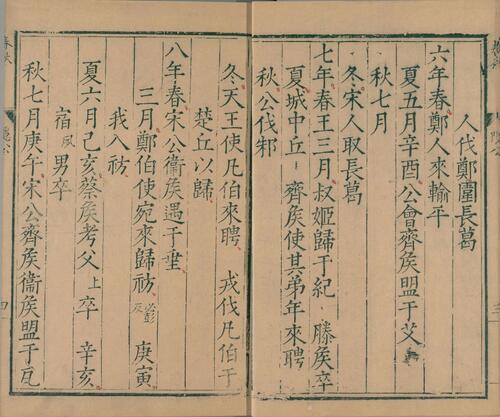 人伐鄭圍長葛
六年春鄭人來輸平
夏五月辛酉公會齊矦盟于艾
秋七月
冬宋人取長葛
七年春王三月叔姬歸于紀 滕矦卒
夏城中丘 齊矦使其弟年來聘
秋公伐邾
冬天王使凡伯來聘 戎伐凡伯于
楚丘以歸
八年春宋公衛矦遇于垂
三月鄭伯使宛來歸祊必彭反 庚寅
我入祊
夏六月己亥蔡矦考父上卒 辛亥
宿夙男卒
秋七月庚午宋公齊矦衛矦盟于瓦
春秋
四